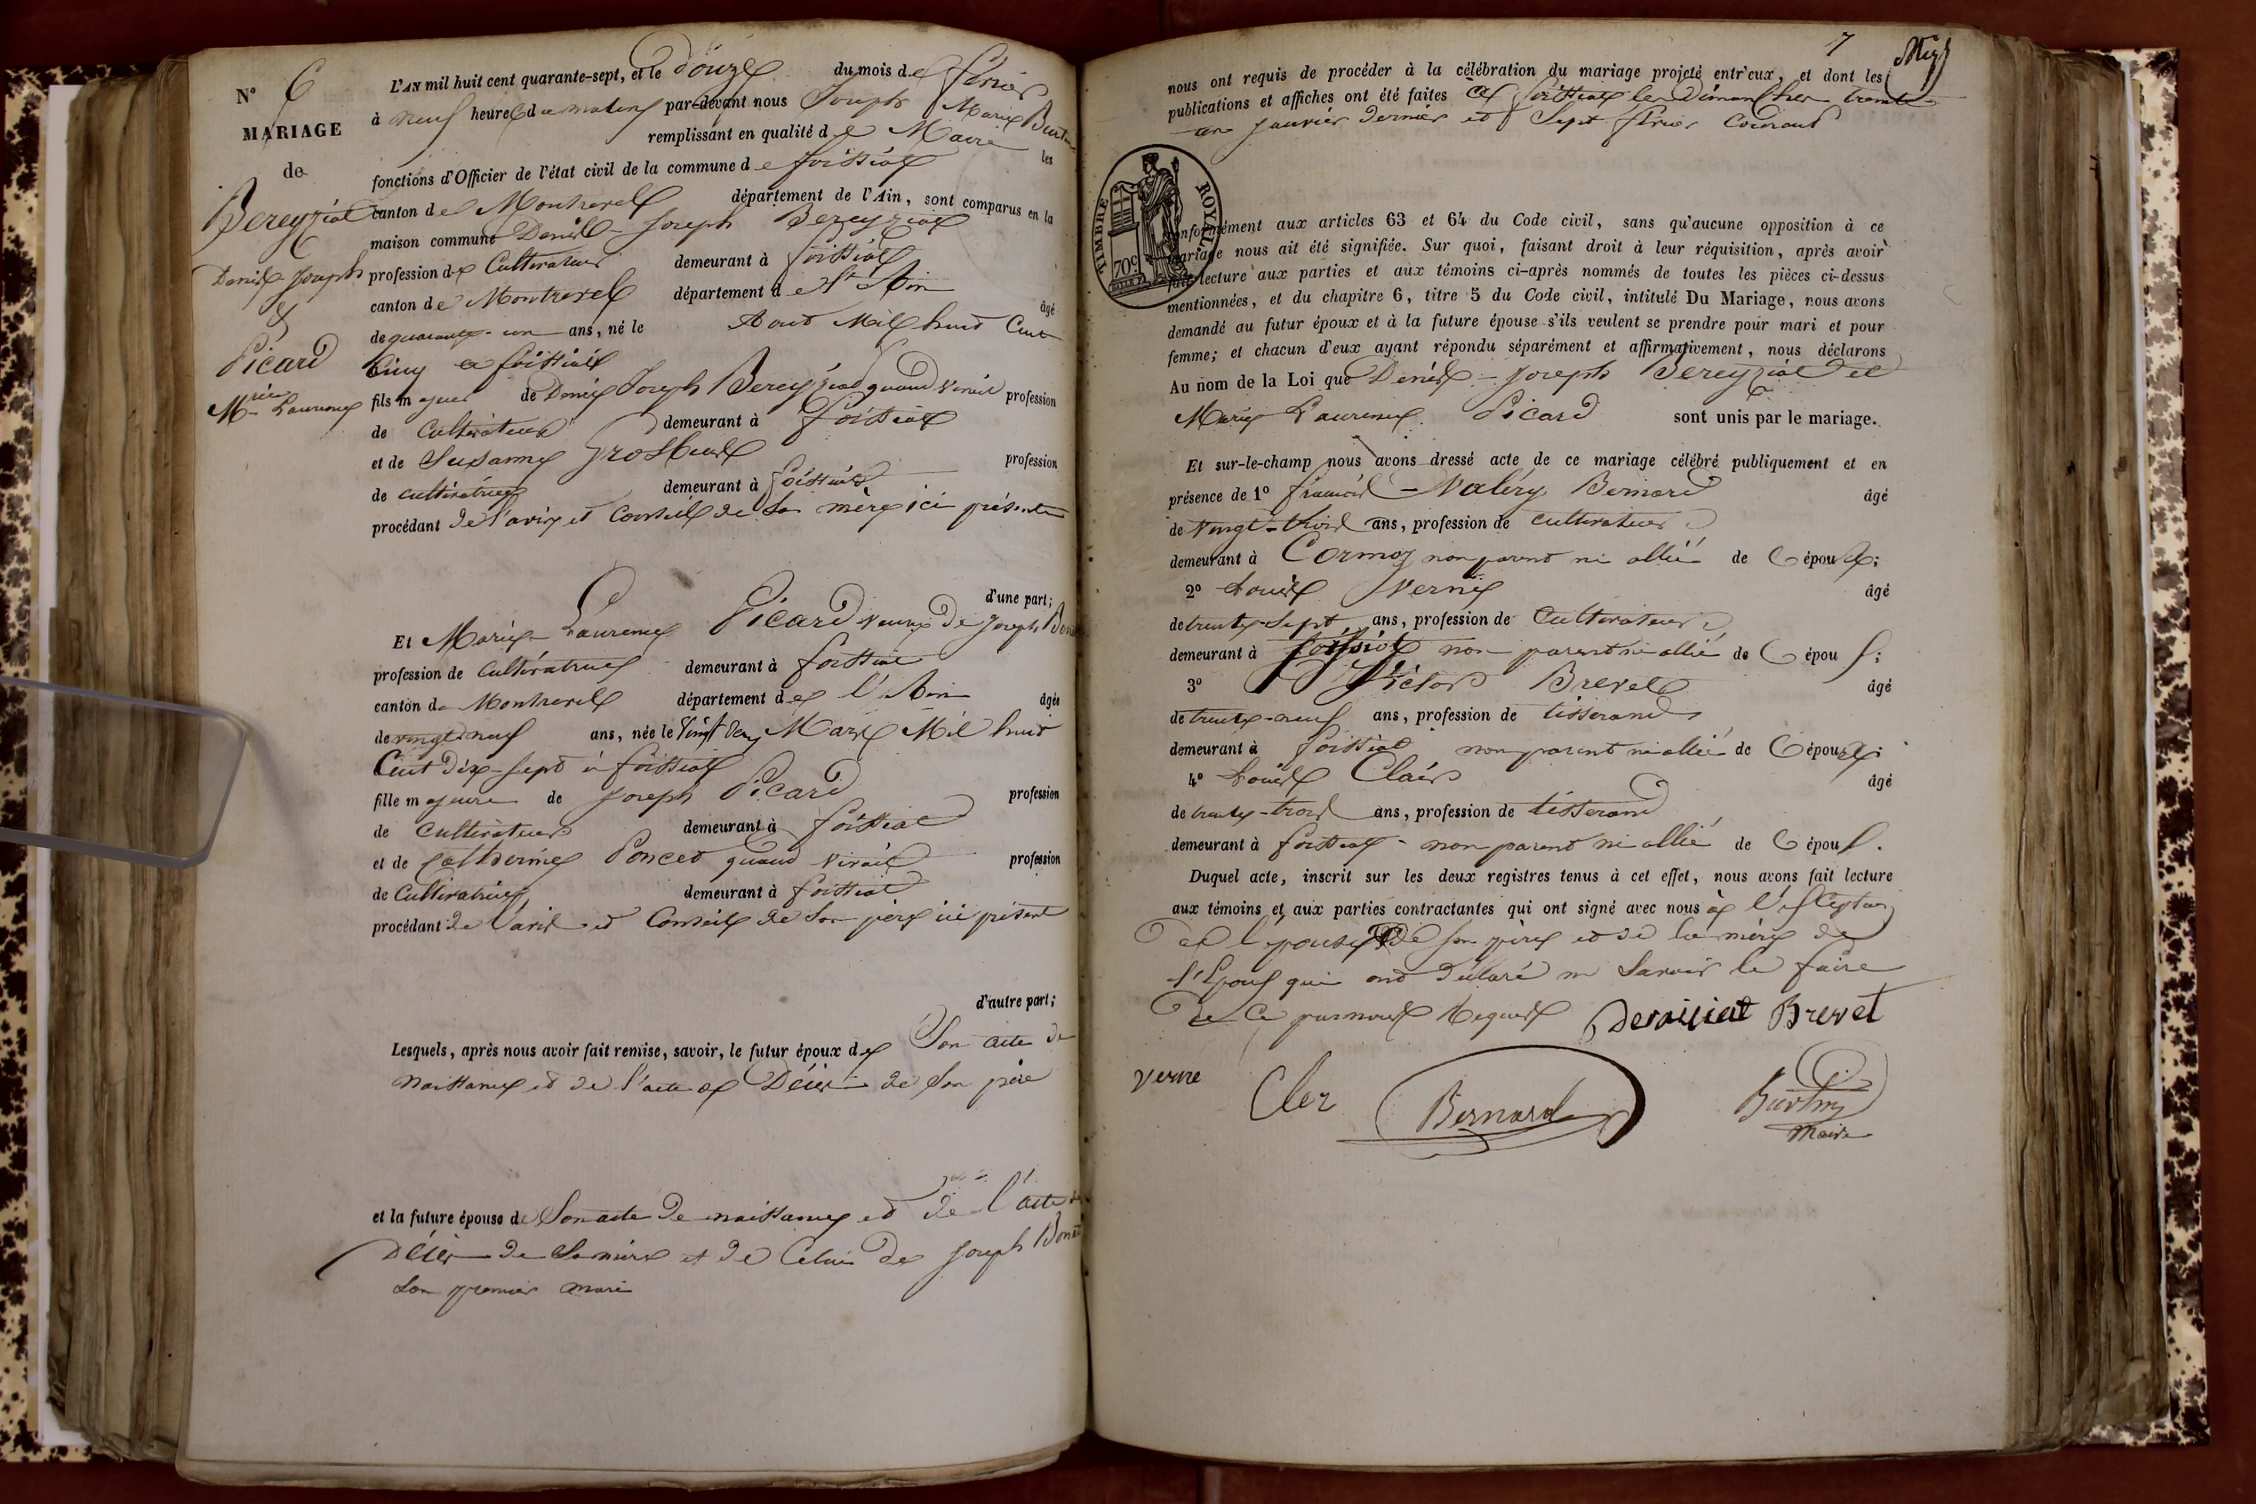 N° 6
MARIAGE
de
Bereyziat
Denis Joseph
&
Picard
M.rie Laurence
L'AN mil huit cent quarante-sept, et le Douze du mois de février
à neuf heures du matin par-devant nous Joseph Marie
remplissant en qualité de Maire les
fonctions d'Officier de l'état civil de la commune de foissiat
canton de Montrevel département de l'Ain, sont comparus en la
maison commune Denis Joseph Bereyziat
profession de Cultivateur demeurant à foissiat
canton de Montrevel département de l'Ain âgé
de quarante-un ans, né le Aout Mil huit Cent
Cinq à foissiat
fils majeur de Denis Joseph Bereyziat quand vivait profession
de Cultivateur demeurant à foissiat
et de Susanne Grosbuis profession
de cultivatrice demeurant à foissiat
procédant de l'avis et Conseil de Sa mère ici présente
d'une part;
Et Marie Laurence Picard veuve de Joseph
profession de cultivatrice demeurant à foissiat
canton de Montrevel département de l'Ain âgée
de vingt neuf ans, née le vingt deux Mars Mil huit
Cent dix-sept à foissiat
fille majeure de Joseph Picard profession
de Cultivateur demeurant à foissiat
et de Catherine Poncet quand vivait profession
de Cultivatrice demeurant à foissiat
procédant de l'avis et Conseil de Son père ici présent
d'autre part;
Lesquels, après nous avoir fait remise, savoir, le futur époux de Son acte de
naissance et de l'acte de Décès de Son père
et la future épouse de Son acte de naissance et de l'acte de
Décès de Sa mère et de Celui de Joseph
Son premier mari
7
nous ont requis de procéder à la célébration du mariage projeté entr'eux, et dont les
publications et affiches ont été faites à foissiat les Dimanches trente
un janvier dernier et Sept février Courant
TIMBRE ROYAL
70c
conformément aux articles 63 et 64 du Code civil, sans qu'aucune opposition à ce
mariage nous ait été signifiée. Sur quoi, faisant droit à leur réquisition, après avoir
fait lecture aux parties et aux témoins ci-après nommés de toutes les pièces ci-dessus
mentionnées, et du chapitre 6, titre 5 du Code civil, intitulé Du Mariage, nous avons
demandé au futur époux et à la future épouse s'ils veulent se prendre pour mari et pour
femme; et chacun d'eux ayant répondu séparément et affirmativement, nous déclarons
Au nom de la Loi que Denis Joseph Bereyziat et
Marie Laurence Picard sont unis par le mariage.
Et sur-le-champ nous avons dressé acte de ce mariage célébré publiquement et en
présence de 1° françois Valéry Bernard âgé
de Vingt-trois ans, profession de cultivateur
demeurant à Cormoz non parent ni allié de l'épouse;
2° Louis Verne âgé
de trente-sept ans, profession de Cultivateur
demeurant à foissiat non parent ni allié de l'époux;
3° Victor Brevet âgé
de trente-neuf ans, profession de tisserand
demeurant à foissiat non parent ni allié de l'épouse;
4° Louis Clair âgé
de trente-trois ans, profession de tisserand
demeurant à foissiat non parent ni allié de l'époux.
Duquel acte, inscrit sur les deux registres tenus à cet effet, nous avons fait lecture
aux témoins et aux parties contractantes qui ont signé avec nous à l'exception
de l'épouse de Son père et de la mère de
l'Epoux qui ont déclaré ne Savoir le faire
de ce par nous Requis Beraiziat Brevet
verne Cler Bernard
Maire